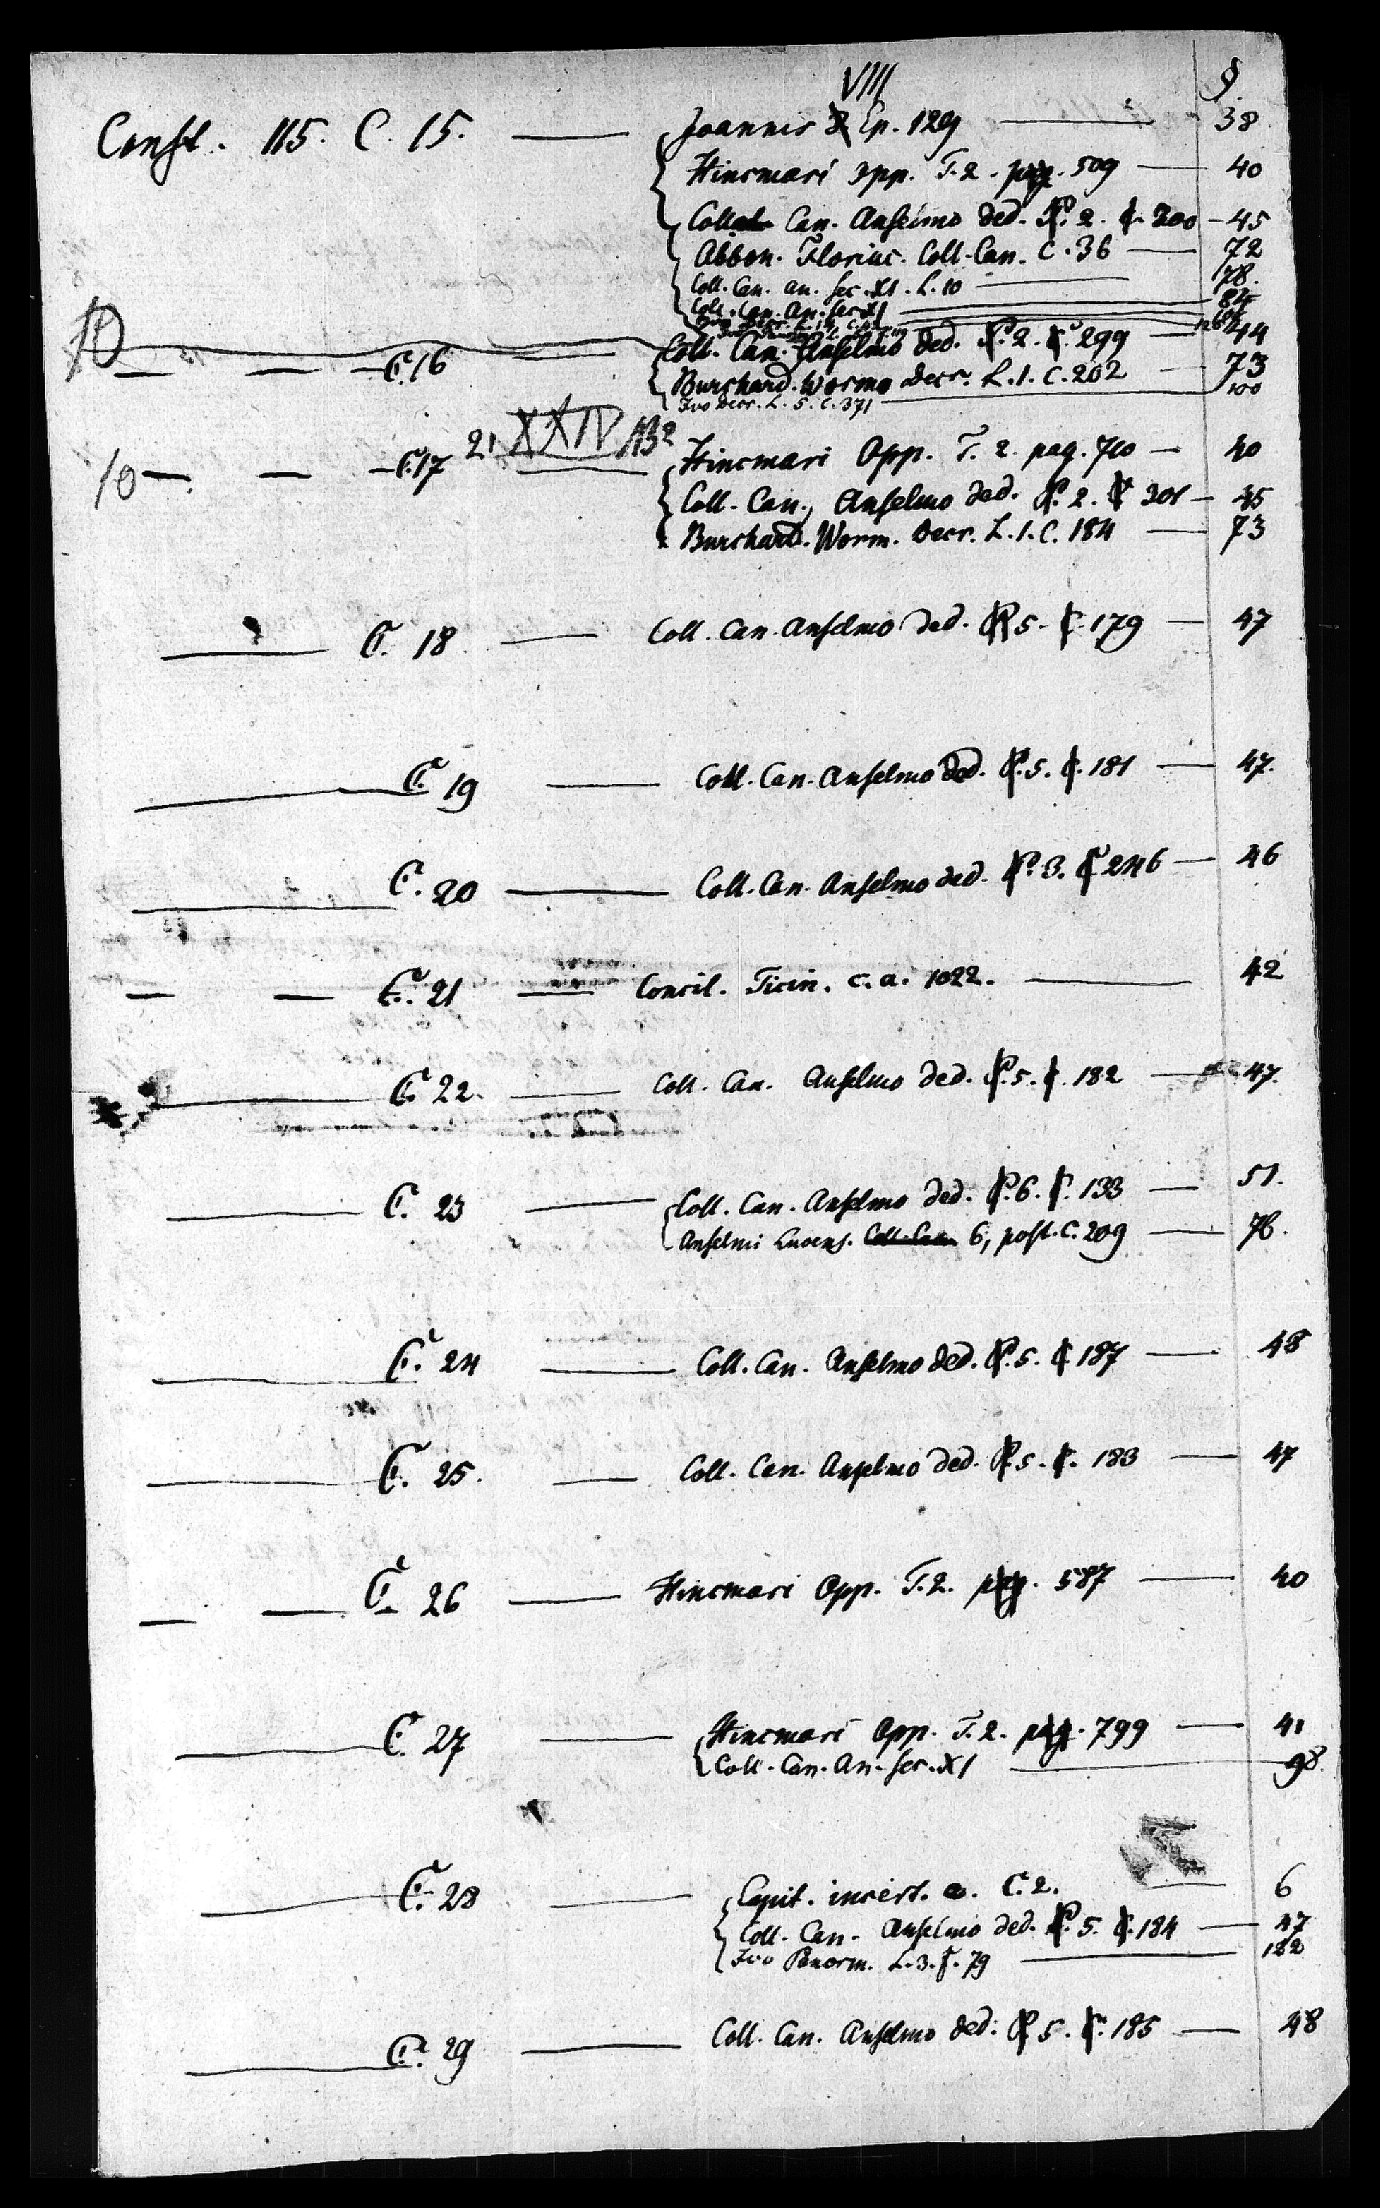 VIII §.
Const. 115. C. 15. — Joannis Ep. 129 — 38
Hincmari opp. T. 2. pag. 509 — 40
Coll. Can. Anselmo ded. P. 2. C. 200 — 45
Abbon. Floriac. Coll. Can. C. 36 — 72
Coll. Can. an. sec. XI. L. 10 — 78.
Coll. Can. An. sec. XI — 84
10
— — — C. 16 — Coll. Can. Anselmo ded. P. 2. C. 299 — 44
Burchard. Worm. Decr. L. 1. C. 202 — 73
Ivo Decr. L. 5. C. 371 — 100
21 XXIV 132
10 — — — C. 17 — Hincmari Opp. T. 2. pag. 710 — 40
Coll. Can. Anselmo ded. P. 2. C. 301 — 45
Burchard. Worm. Decr. L. 1. C. 184 — 73
— C. 18 — Coll. Can. Anselmo ded. P. 5. C. 179 — 47
— C. 19 — Coll. Can. Anselmo ded. P. 5. C. 181 — 47.
— C. 20 — Coll. Can. Anselmo ded. P. 3. C. 246 — 46
— — C. 21 — Concil. Ticin. c. a. 1022. — 42
— C. 22. — Coll. Can. Anselmo ded. P. 5. C. 182 — 47.
— C. 23 — Coll. Can. Anselmo ded. P. 6. C. 133 — 51.
Anselmi Lucens. Coll. Can. 6, post. C. 209 — 76.
— C. 24 — Coll. Can. Anselmo ded. P. 5. C. 187 — 48
— C. 25. — Coll. Can. Anselmo ded. P. 5. C. 183 — 47
— — C. 26 — Hincmari Opp. T. 2. pag. 587 — 40
— C. 27 — Hincmari Opp. T. 2. pag. 799 — 41
Coll. Can. An. sec. XI — 98.
— C. 28 — Capit. incert. a. C. 2. — 6
Coll. Can. Anselmo ded. P. 5. C. 184 — 47
Ivo Panorm. L. 3. C. 79 — 122
— C. 29 — Coll. Can. Anselmo ded. P. 5. C. 185 — 48